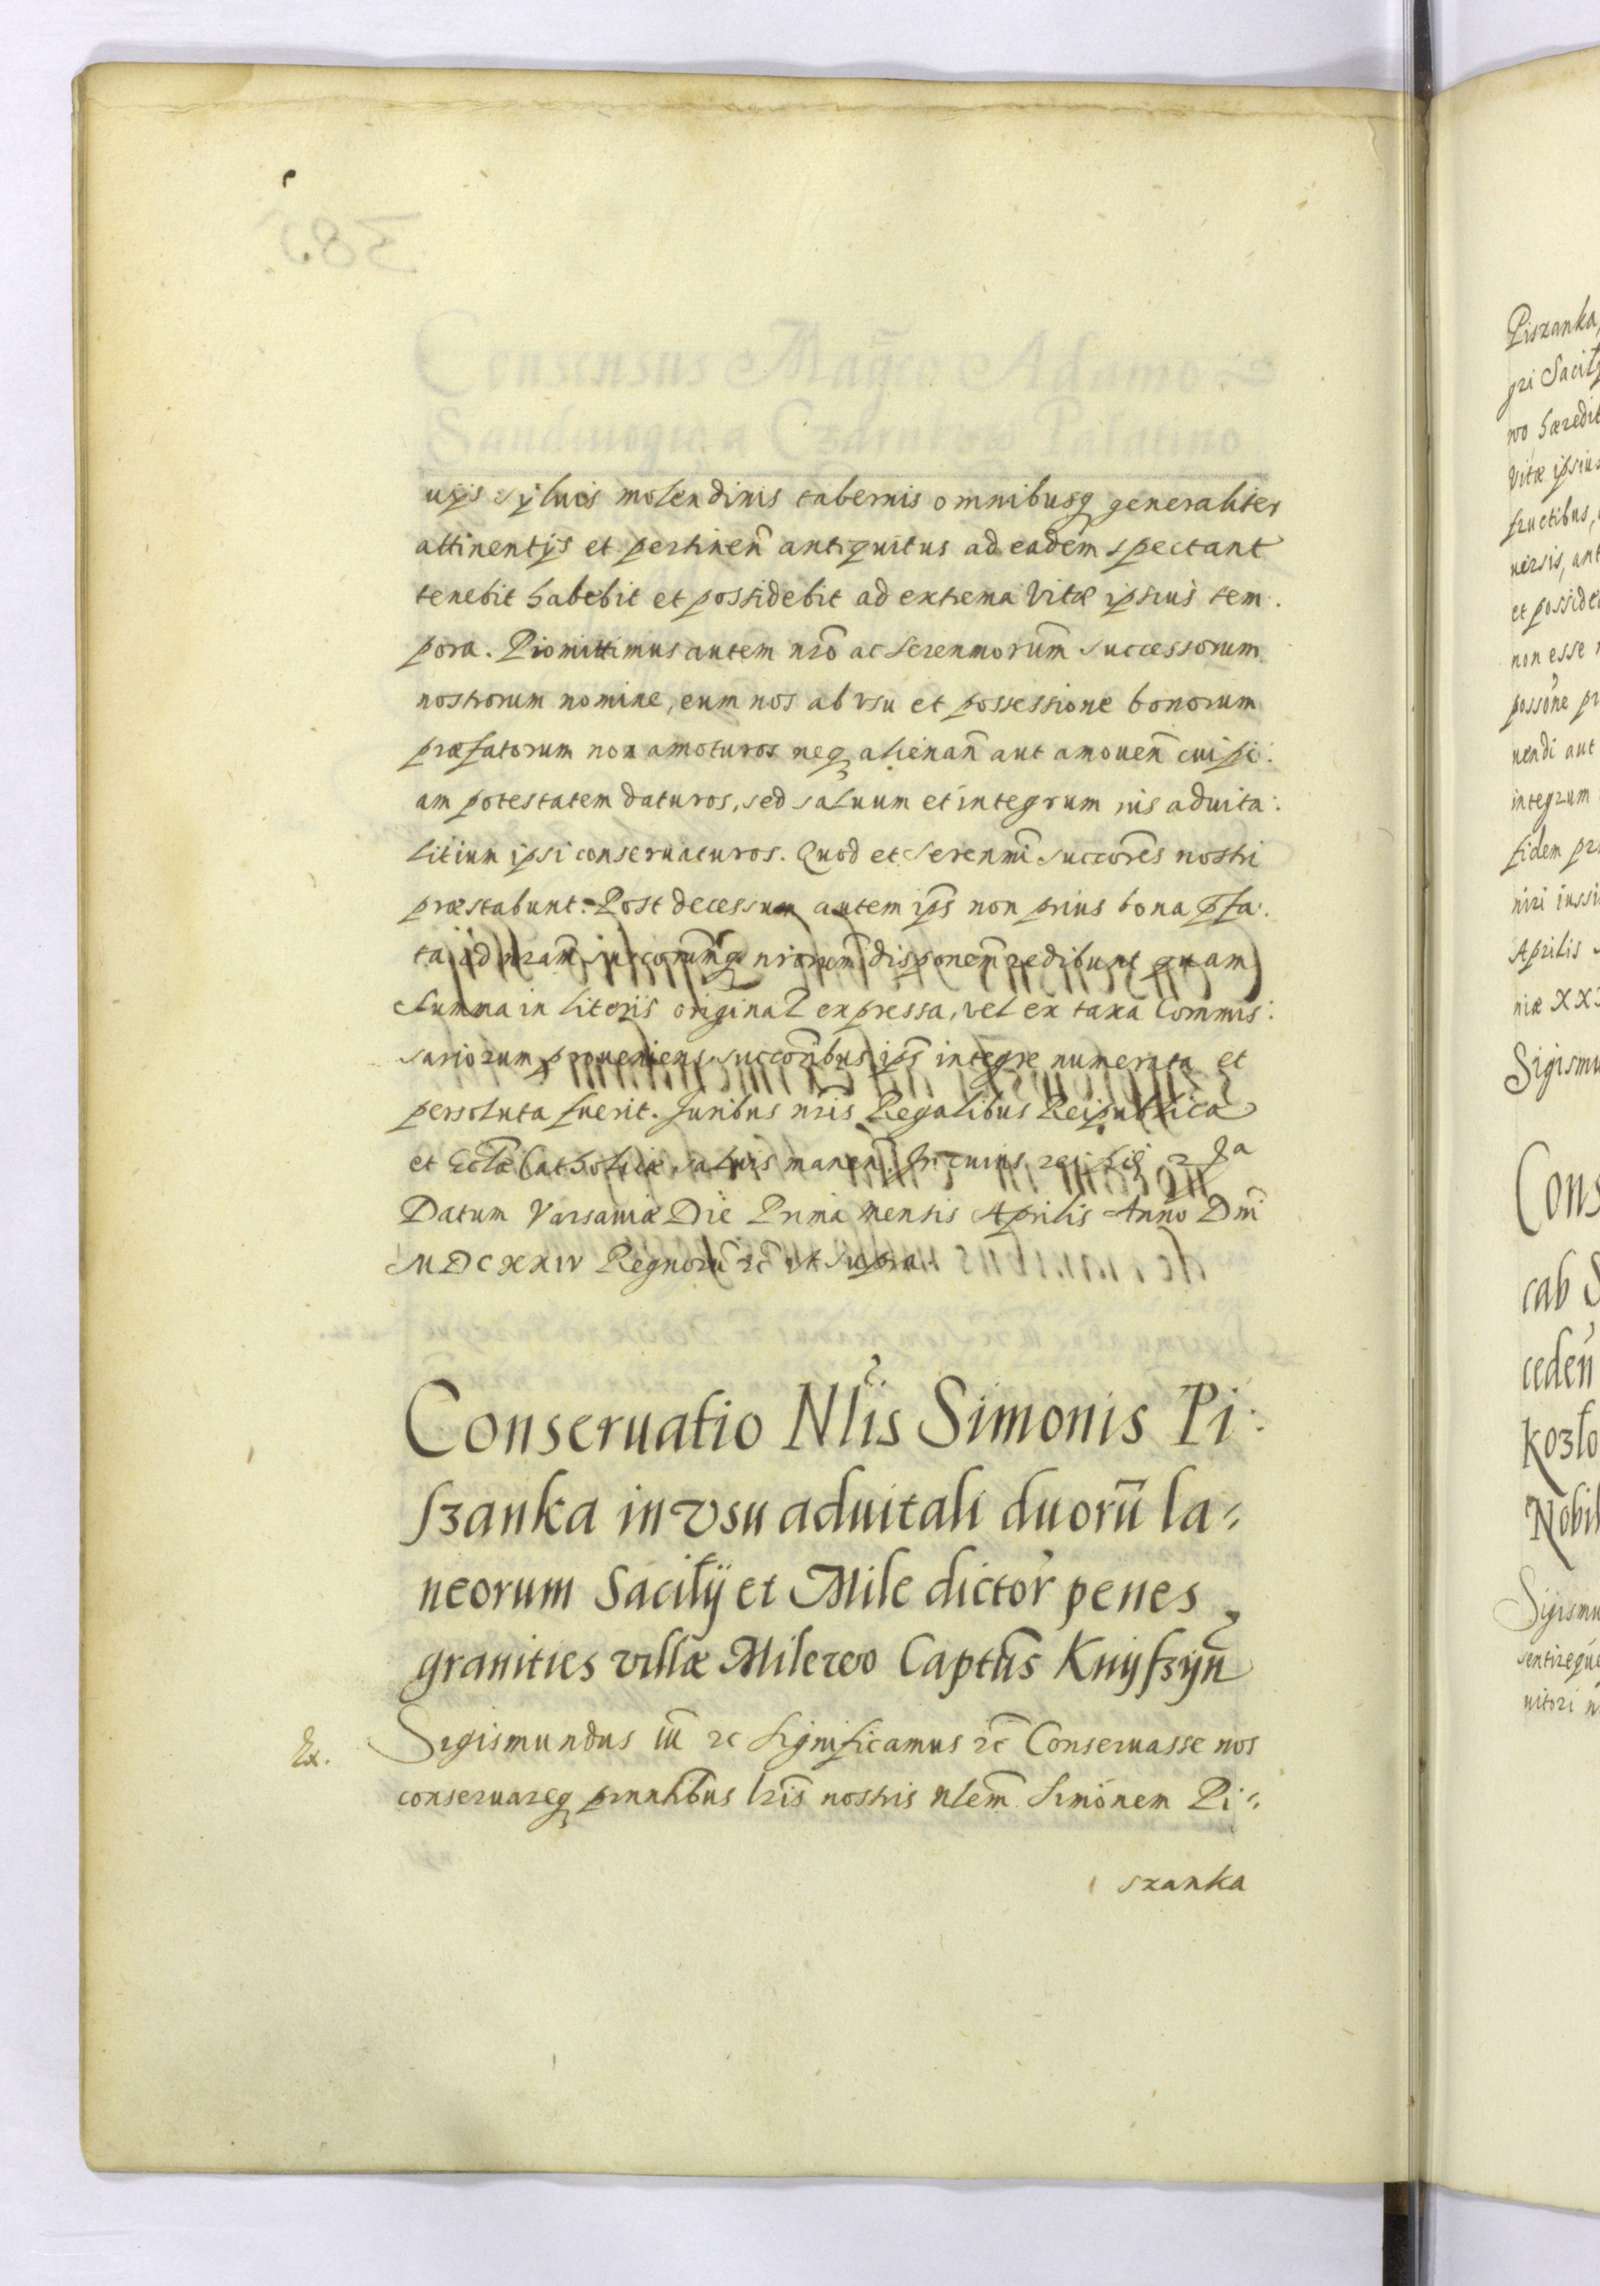 uijs syluis molendinis tabernis omnibusq generaliter
attinentijs et pertinen̄ antiquitus ad eadem spectant
tenebit habebit et possidebit ad extrema Vitæ ipsius tem:
pora. Promittimus autem nr̄o ac Serenmorum̄ successorum
nostrorum nomine, eum nos ab vsu et possessione bonorum
præfatorum non amoturos neq alienan̄ aut amouen̄ cuipi:
am potestatem daturos, sed saluum et integrum ius aduita:
litium ipsi conseruaturos. Quod et Serenmi̅ succores̄ nostri
præstabunt. Post decessum autem ips̄ non prius bona p̄fa:
ta ad nram̄ succorumq̄ nrorum̄ disponem̄ redibunt quam
Summa in literis original expressa, vel ex taxa Commis:
sariorum proueniens succoribus̄ ips̄ integre numerata et
persoluta fuerit. Iuribus nris̄ Regalibus Reipublicæ
et Eclǣ Catholicæ saluis manen̄. In cuius rei
Datum Varsauiæ Die Prima Mensis Aprilis Anno Dni̅
MDCXXIV Regnoru̅ rc̄ vt supra.
Conseruatio Nlis̄ Simonis Pi:
szanka in vsu aduitali duoru̅ la=
neorum Sacilij et Mile dictor penes
granities villæ Milewo Captus̄ Knijszijn̄
Ex.
Sigismundus iii̅ rc Significamus rc̄ Conseruasse nos
conseruareq prnntibus̄ lris̄ nostris Nlem̄ Simonem Pi=
szanka
Piszanka,
gri Sacily
wo hæredit
Vitæ ipsius
fructibus,
uersis, ant
et posside
non esse
possone pr
uendi aut
integrum
fidem pr
niri iussi
Aprilis
niæ XX
Sigismu
Cons
cab S
ceden̄
kozło
Nobil
Sigismu
sentireque
uitori n